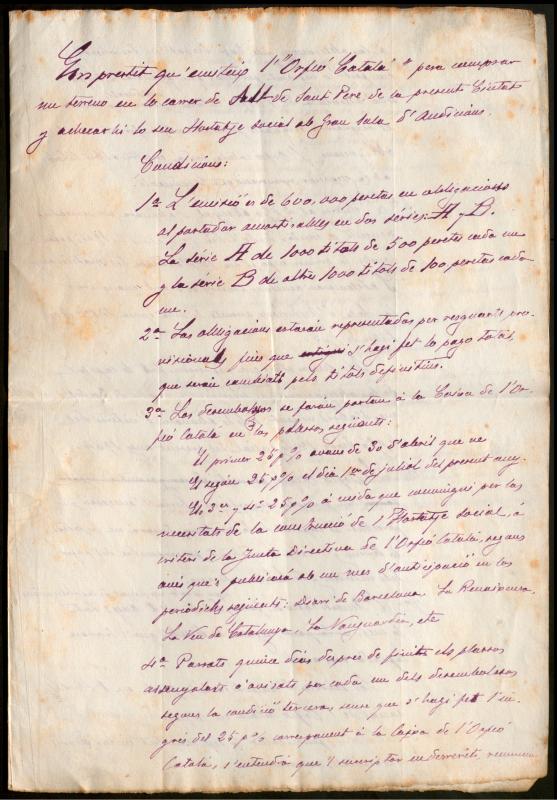 Gros prestit qu'emiteix l'"Orfeó Catalá" pera comprar
un terreno en lo carrer de Salt de Sant Pere de la present Ciutat
y aixecarhi lo seu Hostatje social ab Gran Sala d'Audicions.
Condicions:
1a L'emisió es de 600,000 pesetas en obligacions
al portador amortisables en dos séries: A y B.
La série A de 1000 titols de 500 pesetes cada un
y la série B de altre 1000 titols de 100 pesetas cada
un.
2a Las obligacions estarán representadas per resguarts pro-
visionals fins que s'hagi fet lo pago total,
que serán cambiats pels titols definitius.
3a Los desembolsos se farán portan á la Caixa de l'Or-
feó Catalá en los plassos següents:
El primer 25 p% avans de 30 d'abril que ve
El segon 25 p% el dia 1er de juliol del present any.
El 3er y 4t 25 p% á mida que convingui per las
necesitats de la construcció de l'Hostatje social, á
criteri de la Junta Directiva de l'Orfeó Catalá, segons
avis que's publicará ab un mes d'anticipació en los
periódichs següents: Diari de Barcelona, La Renaixensa,
La Veu de Catalunya, La Vanguardia, etc
4a Passats quinze dias despres de finits els plassos
assenyalats ó avisats per cada un dels desembolsos
segons la condició tercera, sens que s'hagi fet l'in-
grés del 25 p% corresponent á la Caixa de l'Orfeó
Catalá, s'entendrá que'l suscriptor en descubert, renuncia